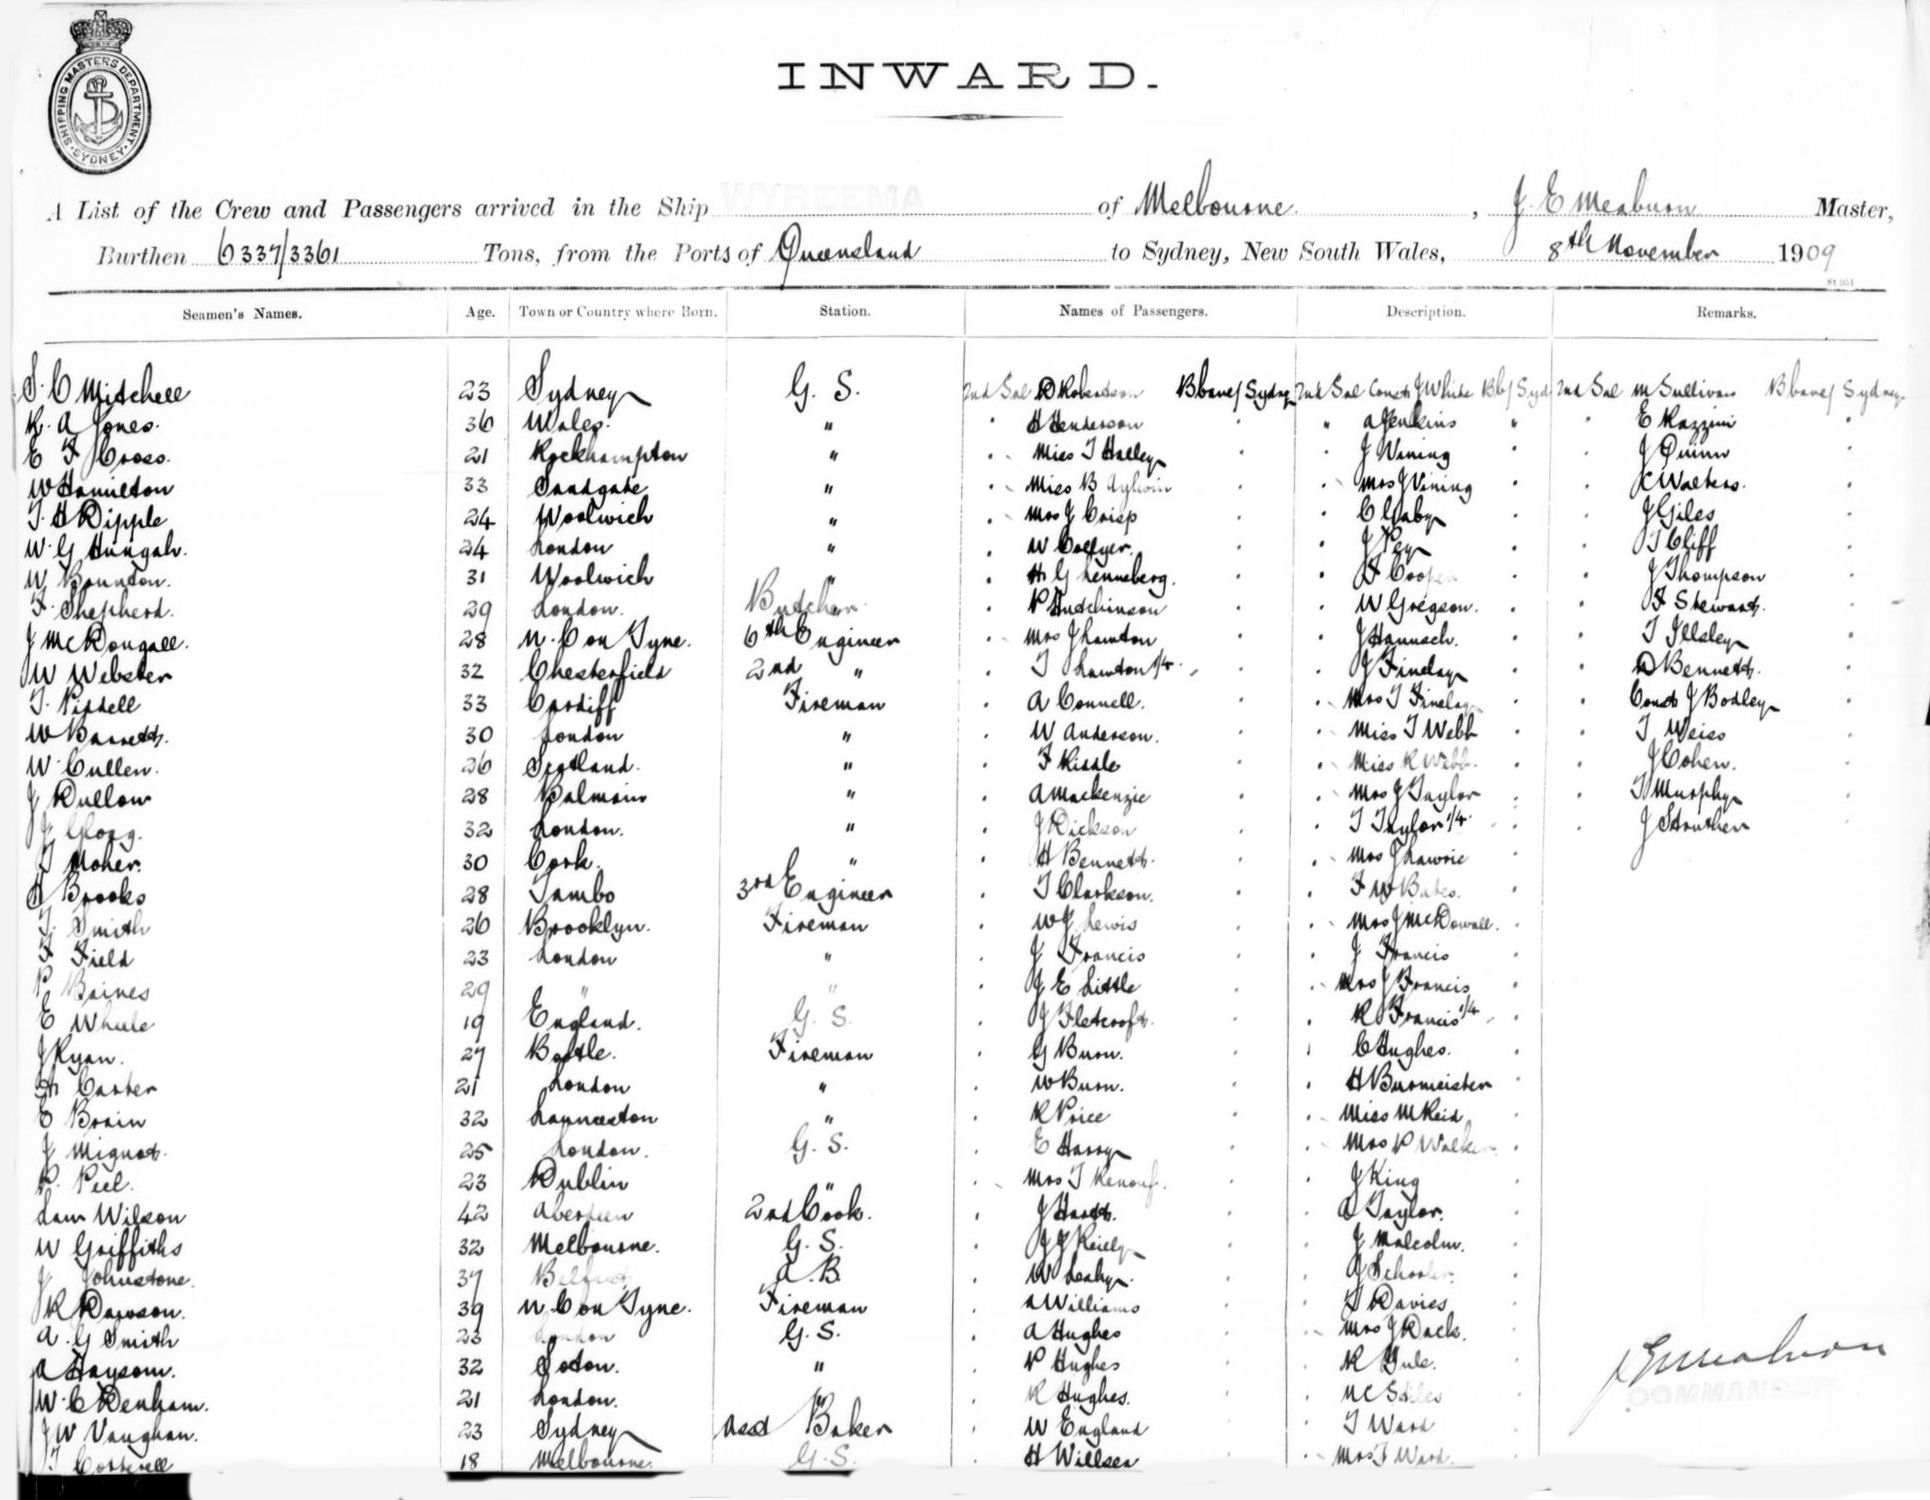 SHIPPING MASTERS DEPARTMENT. SYDNEY.
INWARD.
A List of the Crew and Passengers arrived in the Ship WYREEMA of Melbourne, J E Meaburn Master,
Burthen 6337/3361 Tons, from the Ports of Queensland to Sydney, New South Wales, 8th November 1909
Seamen's Names. Age. Town or Country where Born. Station. Names of Passengers. Description. Remarks.
S. C Mitchell 23 Sydney G. S. 2nd Sal D Robertson Bbane/Sydney 2nd Sal Const J White Bb/Syd 2nd Sal M Sullivan Bbane/Sydney
R. A Jones. 36 Wales. " H Henderson " A Jenkins " E Razzini
E F Cross. 21 Rockhampton " Miss T Halley J Vining J Quinn
W Hamilton 33 Sandgate " Miss B Aylwin Mrs J Vining Walters.
T. H Dipple 24 Woolwich " Mrs J Crisp C Gaby J Giles
W. G 24 London " W Collyer. J T Cliff
W 31 Woolwich " H. G Lenneberg. F Cooper J Thompson
F. Shepherd. 29 London. Butcher P Hutchinson W Gregson. F Stewart.
J McDougall. 28 N. C on Tyne. 6th Engineer Mrs J Lawton J Hannach. T Illsley
W Webster 32 Chesterfield 2nd " T Lawton 1/4 J Finelay D Bennett.
T. 33 Cardiff Fireman A Connell. Mrs T Finelay Const J Bodley
W Barrett. 30 London " W Anderson. Miss T Webb T Weiss
W. Cullen. 26 Scotland. " F Riddle Miss R Webb. J Cohen.
J Dullow 28 Balmain " A Mackenzie Mrs J Taylor T Murphy
J 32 London. " J Dickson T Taylor 1/4 J Struthen
T Moher. 30 Cork. " H Bennett. Mrs J Lawrie
Brooks 28 Tambo 3rd Engineer T Clarkson. F W Bates.
T. Smith 26 Brooklyn. Fireman W J Lewis Mrs J McDowall.
F Field 23 London " J Francis J Francis
P Baines 29 " " J E Little Mrs J Francis
E Wheele 19 England. G. S. J R Francis 1/4
J Ryan. 27 Bootle. Fireman G Burn. C Hughes.
H Carter 21 London " W Burn. H Burmeister
E Brain 32 Launceston " R Price Miss M Reid
J Mignot. 25 London. G. S. E Harry Mrs P Walker.
P. Peel. 23 Dublin " Mrs T Renouf. J King
Sam Wilson 42 Aberdeen 2nd Cook. J Taylor.
W Griffiths 32 Melbourne. G. S. J J Reiely J Malcolm.
J Johnstone. 37 Belfast A. B. W Leahy.
R Dawson. 39 N. C on Tyne. Fireman Williams T Davies
A. G Smith 23 London G. S. A Hughes Mrs J Dack.
A Haysom. 32 Soton. " P Hughes R Yule.
W. C Denham. 21 London. " R Hughes. Stiles
J W Vaughan. 23 Sydney Asst Baker W England T Ward
T Cotterell 18 Melbourne. G. S. H Willsea Mrs T Ward.
J E Meaburn
COMMANDER.